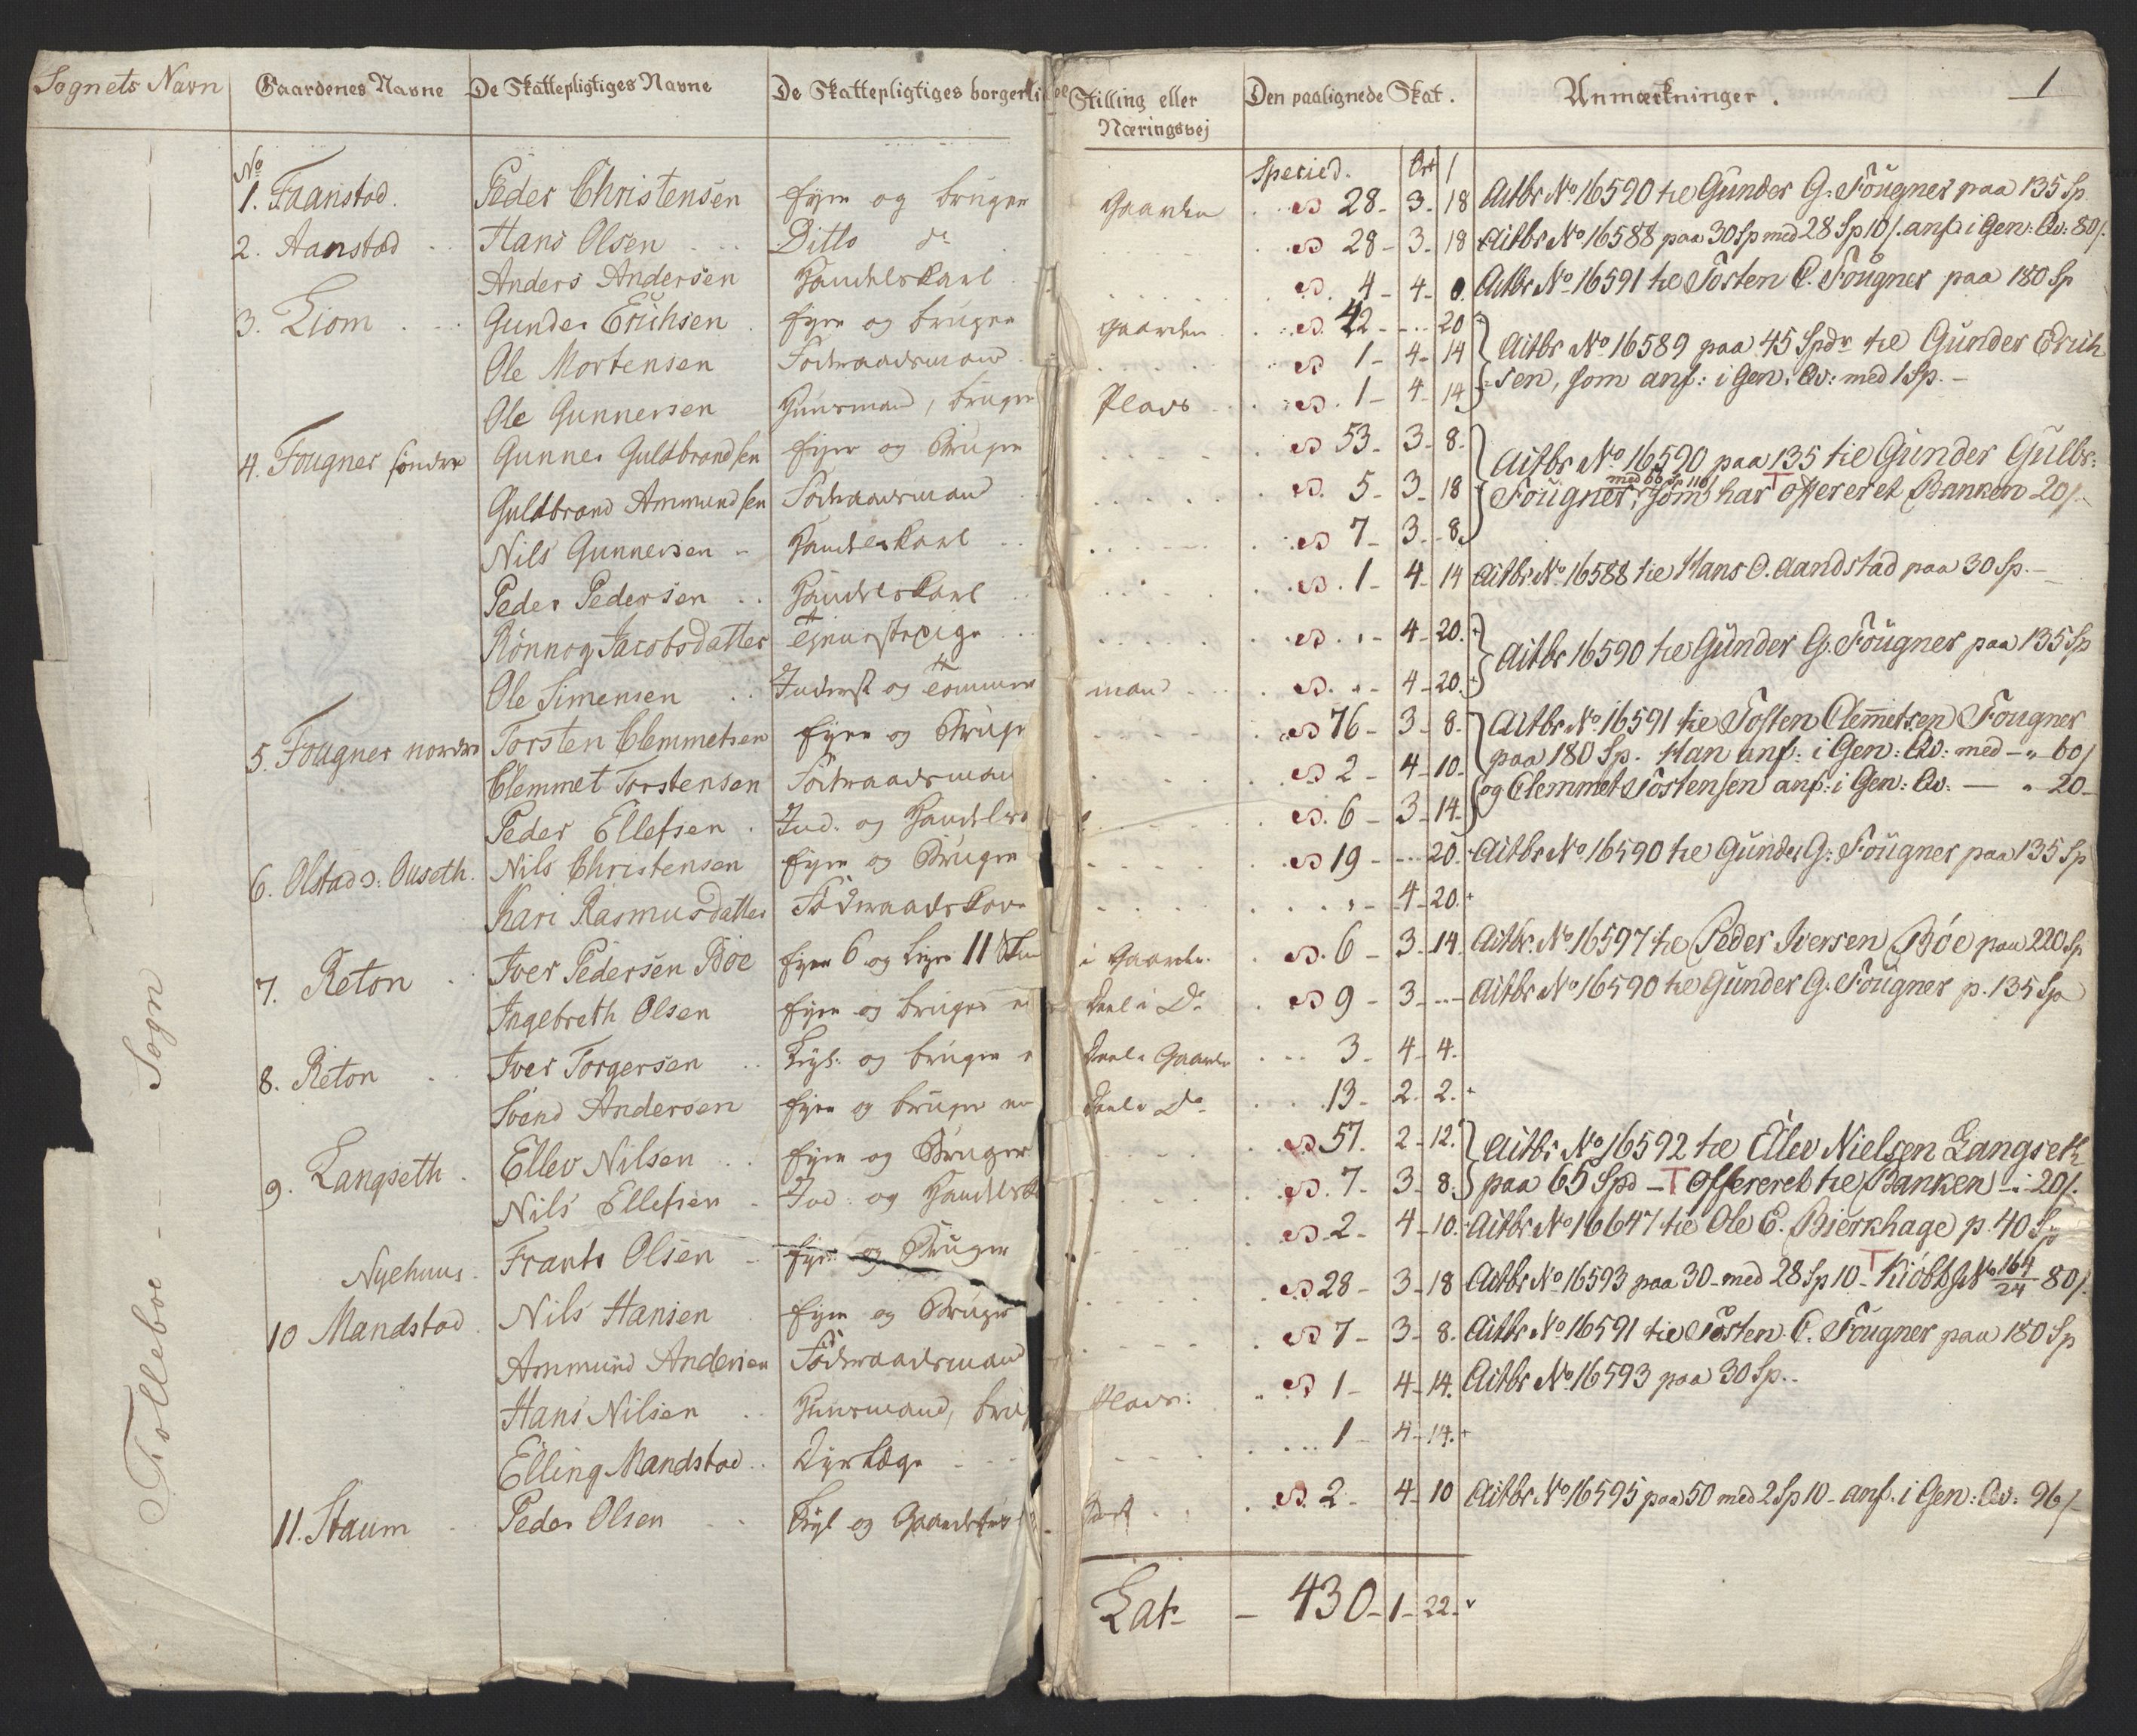 Sognets Navn Gaardenes Navne De Skattepligtiges Navne De Skattepligtiges borgerlige Stilling eller Næringsvej Den paalignede Skat. Anmærkninger. 1
Folleboe Sogn
No Specied. Ort
1. Faanstad. Peder Christensen Eyer og bruger Gaarden 28 - 3 - 18 Aitbr No 16590 til Gunder G: Fougner paa 135 Sp.
2. Aanstad Hans Olsen Ditto do 28 - 3 - 18 Aitbr No 16588 paa 30 Sp med 28 Sp 10 /. anf: i Gen: Qv: 80/.
Anders Andersen Handelskarl 4 - 4 - 0. Aitbr No 16591 til Tosten C. Fougner paa 180 Sp
3. Liom Gunder Erichsen Eyer og bruger Gaarden 42 - - 20
Ole Mortensen Föderaadsmand 1 - 4 - 14 Aitbr No 16589 paa 45 Spdr til Gunder Erich
Ole Gunnersen Huusmand, bruger Plads 1 - 4 - 14 sen, som anf: i Gen: Qv: med 1 Sp. -
4. Fougner søndre Gunner Guldbrandsen Eyer og Bruger 53 - 3 - 8. Aitbr No 16590 paa 135 til Gunder Gulbr:
Guldbrand Ammundsen Föderaadsmand 5 - 3 - 18 Fougner, som har offereret Banken 20/.
Nils Gunnersen Handelskarl 7 - 3 - 8.
Peder Pedersen Handelskarl 1 - 4 - 14 Aitbr No 16588 til Hans O. Aandstad paa 30 Sp. -
Rönnog Jacobsdatter 4 - 20. Aitbr 16590 til Gunder G. Fougner paa 135 Sp
Ole Simensen Inderst og Tömmermand 4 - 20.
5. Fougner nordre Torsten Clemmetsen Eyer og Bruger 76 - 3 - 8. Aitbr No 16591 til Tosten Clemetsen Fougner
Clemmet Torstensen Föderaadsmand 2 - 4 - 10. paa 180 Sp. Han anf: i Gen: Qv: med - " 60/
Peder Ellefsen Ind. og Handels 6 - 3 - 14. og Clemmet Tostensen anf: i Gen: Qv. — " 20 -
6. Olstad o: Ouseth. Nils Christensen Eyer og Bruger 19 - - 20. Aitbr No 16590 til Gunder G: Fougner paa 135 Sp
Kari Rasmusdatter Föderaadskone 4 - 20.
7. Reton Iver Pedersen Böe Eyer 6 og Leyer 11 i Gaarden. 6 - 3 - 14 Aitbr. No 16597 til Peder Iversen Böe paa 220 Sp
Ingebreth Olsen Eyer og bruger en Deel i Do 9 - 3 - Aitbr No 16590 til Gunder G. Fougner p. 135 Sp
8. Reton Iver Torgersen Leyl: og bruger en Deel i Gaarden 3 - 4 - 4.
Svend Andersen Eyer og bruger en Deel i Do 13 - 2. 2.
9. Langseth Ellev Nilsen Eyer og Bruger 57. 2 - 12. Aitbr No 16592 til Ellev Nielsen Langseth
Nils Ellefsen Ind. og Handels 7 - 3 - 8. paa 65 Spd - T offereret til Banken - 20/.
Nyehuus. Frants Olsen Eyer og Bruger 2 - 4 - 10. Aitbr No 16647 til Ole E. Bierkhage p. 40 Sp
10 Mandstad. Nils Hansen Eyer og Bruger 28 - 3 - 18 Aitbr No 16593 paa 30 - med 28 Sp 10 - T No 164/24 80/.
Ammund Andersen Föderaadsmand 7 - 3 - 8. Aitbr No 16591 til Tosten C. Fougner paa 180 Sp
Hans Nilsen Huusmand, bruger Plads. 1 - 4 - 14. Aitbr No 16593 paa 30 Sp. -
Elling Mandstad Dyrlæge 1 - 4 - 14.
11. Staum Peder Olsen Leyl og 2 - 4 - 10 Aitbr No 16595 paa 50 med 2 Sp 10 - anf. i Gen: Qv: 96/
Lat - 430 - 1 - 22.